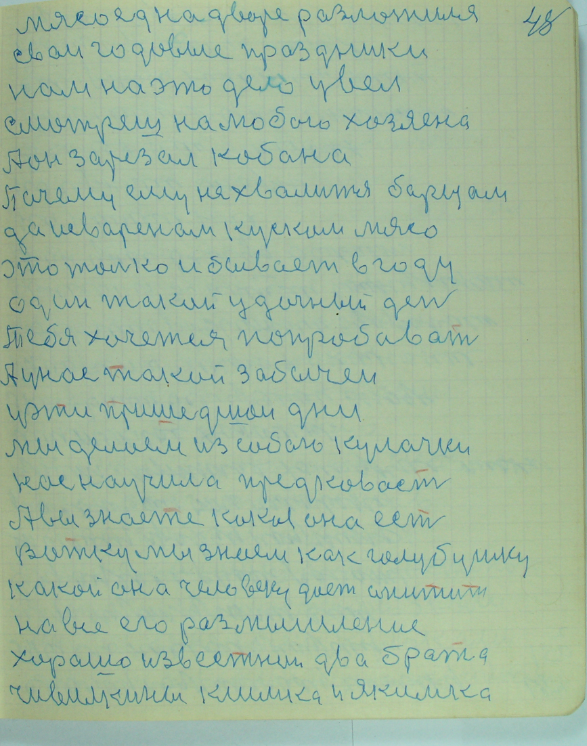 48
мясоед на дворе разложиля
свои годовые праздники
нам на это дело увел
смотреш на любого хозяена
Аон зарезал кобана
Почему ему не хвалитя барщам
да неваренам куском мясо
это толко и бывает в году
один такой удочный ден
Тебя хочется попробават
Аунас такой забычеи
у эти пришедшои дни
мы делаем из собою кулачки
нас научила предковаст
Авы знаете кокоя она ест
Вотку мы знаем как голубушку
какой она человеку дает
на все его размышление
хорошо известнии два брата
чивилкины климка и якимка